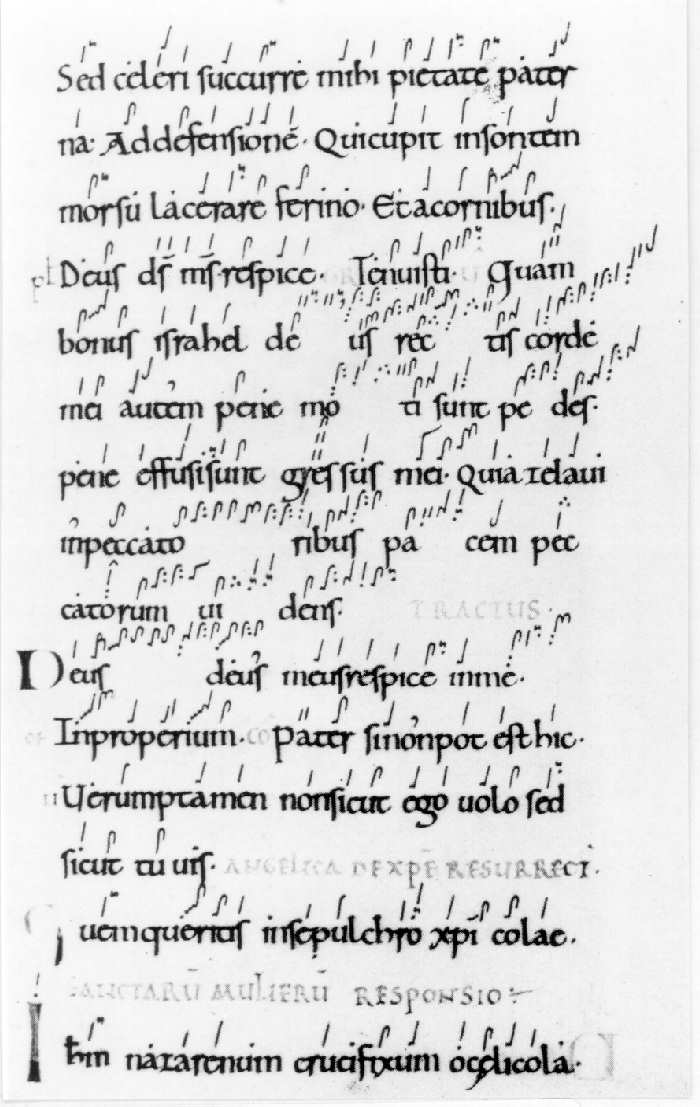 Sed celeri succurre mihi pietate pater
na. Addefensione. Quicupit insontem
morsu lacerare ferino. Etacornibus.
Deus ds ms respice. Tenuisti. Quam
bonus israhel de us rec tis corde
mei autem pene mo ti sunt pe des.
pene effusisunt gressus mei. Quiazelaui
inpeccato ribus pa cem pec
catorum ui dens.
TRACTUS.
Deus deus meusrespice inme.
Inproperium. Pater sinonpot esthic.
Uerumptamen nonsicut ego uolo sed
sicut tu uis. ANGELICA DEXPE RESURRECT.
Quemqueritis insepulchro xpi colae.
SANCTARU MULIERU RESPONSIO
Ihm nazarenum crucifixum ocelicola.